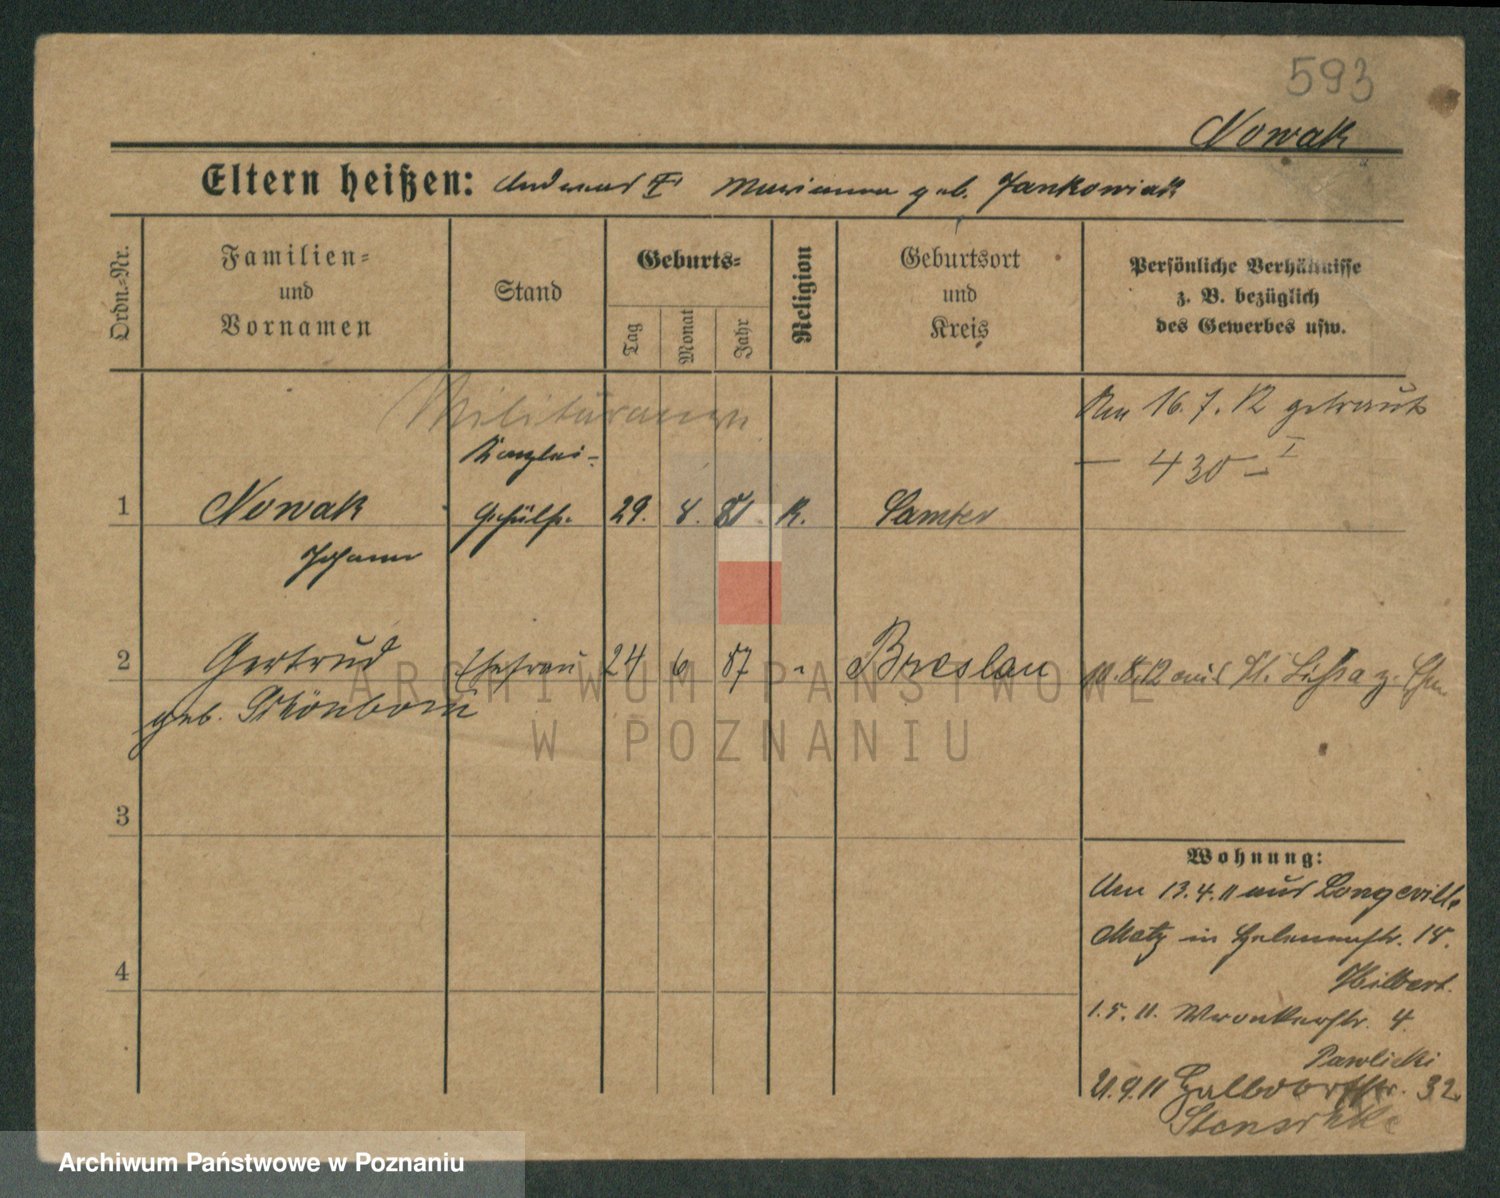 593
Nowak
Eltern heißen: Andreas † Marianna geb. Jankowiak
Ordn.-Nr.
Familien- und Vornamen
Stand
Geburts-
Tag
Monat
Jahr
Religion
Geburtsort und Kreis
Persönliche Verhältnisse z. B. bezüglich des Gewerbes usw.
Militäranw
Am 16. 7. 12 getraut
— 430 — I
Kanzlei-
1 Nowak Gehülfe 29. 8. 81. K. Samter
Johann
2 Gertrud Ehefrau 24 6 87 " Breslau 10.8.12 aus Lissa z. Ehem
geb. Schönborn
3
4
Wohnung:
Am 13.4.11 aus Longeville
Metz in Helenenstr. 18.
Hilbert.
1.5.11. Wronkerstr. 4.
Pawlicki
21.9.11 Halbdorfstr. 32
Stenschke
ARCHIWUM PAŃSTWOWE
W POZNANIU
Archiwum Państwowe w Poznaniu